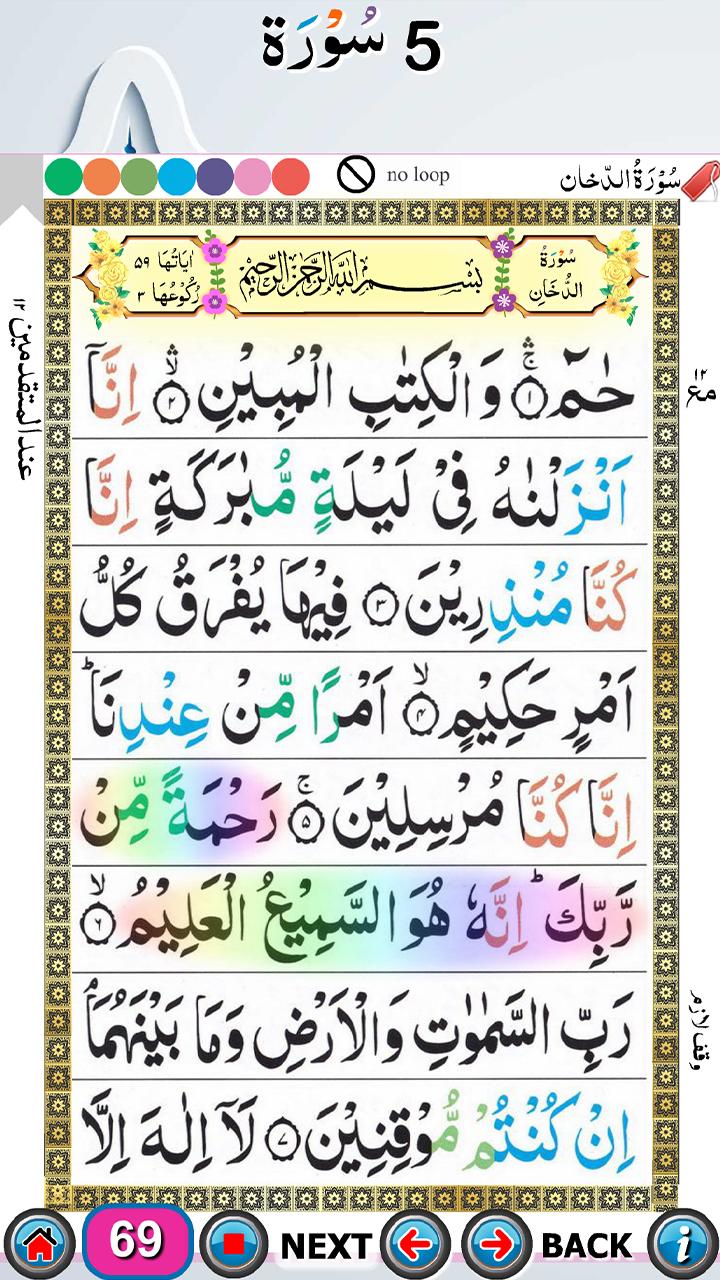 5 سُوْرَة
no loop
سُوْرَةُ الدّخان
سُوْرَةُ الدُّخَانِ
بِسْمِ اللّٰهِ الرَّحْمٰنِ الرَّحِيْمِ
اٰيَاتُهَا ٥٩
رُكُوْعُهَا ٣
عند المتقدمين ١٢
حٰمٓ ۚۛ ١ وَالْكِتٰبِ الْمُبِيْنِ ۙۛ ٢ اِنَّاۤ
اَنْزَلْنٰهُ فِيْ لَيْلَةٍ مُّبٰرَكَةٍ اِنَّا
كُنَّا مُنْذِرِيْنَ ٣ فِيْهَا يُفْرَقُ كُلُّ
اَمْرٍ حَكِيْمٍ ۙ ٤ اَمْرًا مِّنْ عِنْدِنَا ؕ
اِنَّا كُنَّا مُرْسِلِيْنَ ۚ ٥ رَحْمَةً مِّنْ
رَّبِّكَ ؕ اِنَّهٗ هُوَ السَّمِيْعُ الْعَلِيْمُ ۙ ٦
رَبِّ السَّمٰوٰتِ وَالْاَرْضِ وَمَا بَيْنَهُمَا ۘ
وقف لازم
اِنْ كُنْتُمْ مُّوْقِنِيْنَ ٧ لَاۤ اِلٰهَ اِلَّا
69
NEXT
BACK
i